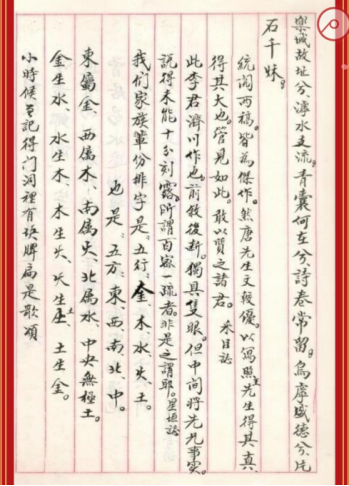 欒城故址兮滹水逆流。青囊何在兮詩卷常留。烏虖盛德兮片
石千妹。
統閱两稿。皆為傑作。然唐先生文較優。以寫照先生得其真。
得其大也。管見如此。敢以質之諸君。 米日誌
此李君濟川作也。前敘後斷。獨具隻眼。但中间將先九事實。
説得未能十分刻露。所謂百密一疏者。非是之謂耶。星垣誌
我们家族輩份排字是:五行:金、木、水、火、土。
也是:五方:東、西、南、北、中。
東屬金、西属木、南属火、北属水、中央無極土。
金生水、水生木、木生火、火生土、土生金。
小時候曾記得门洞裡有块牌扁是歌頌